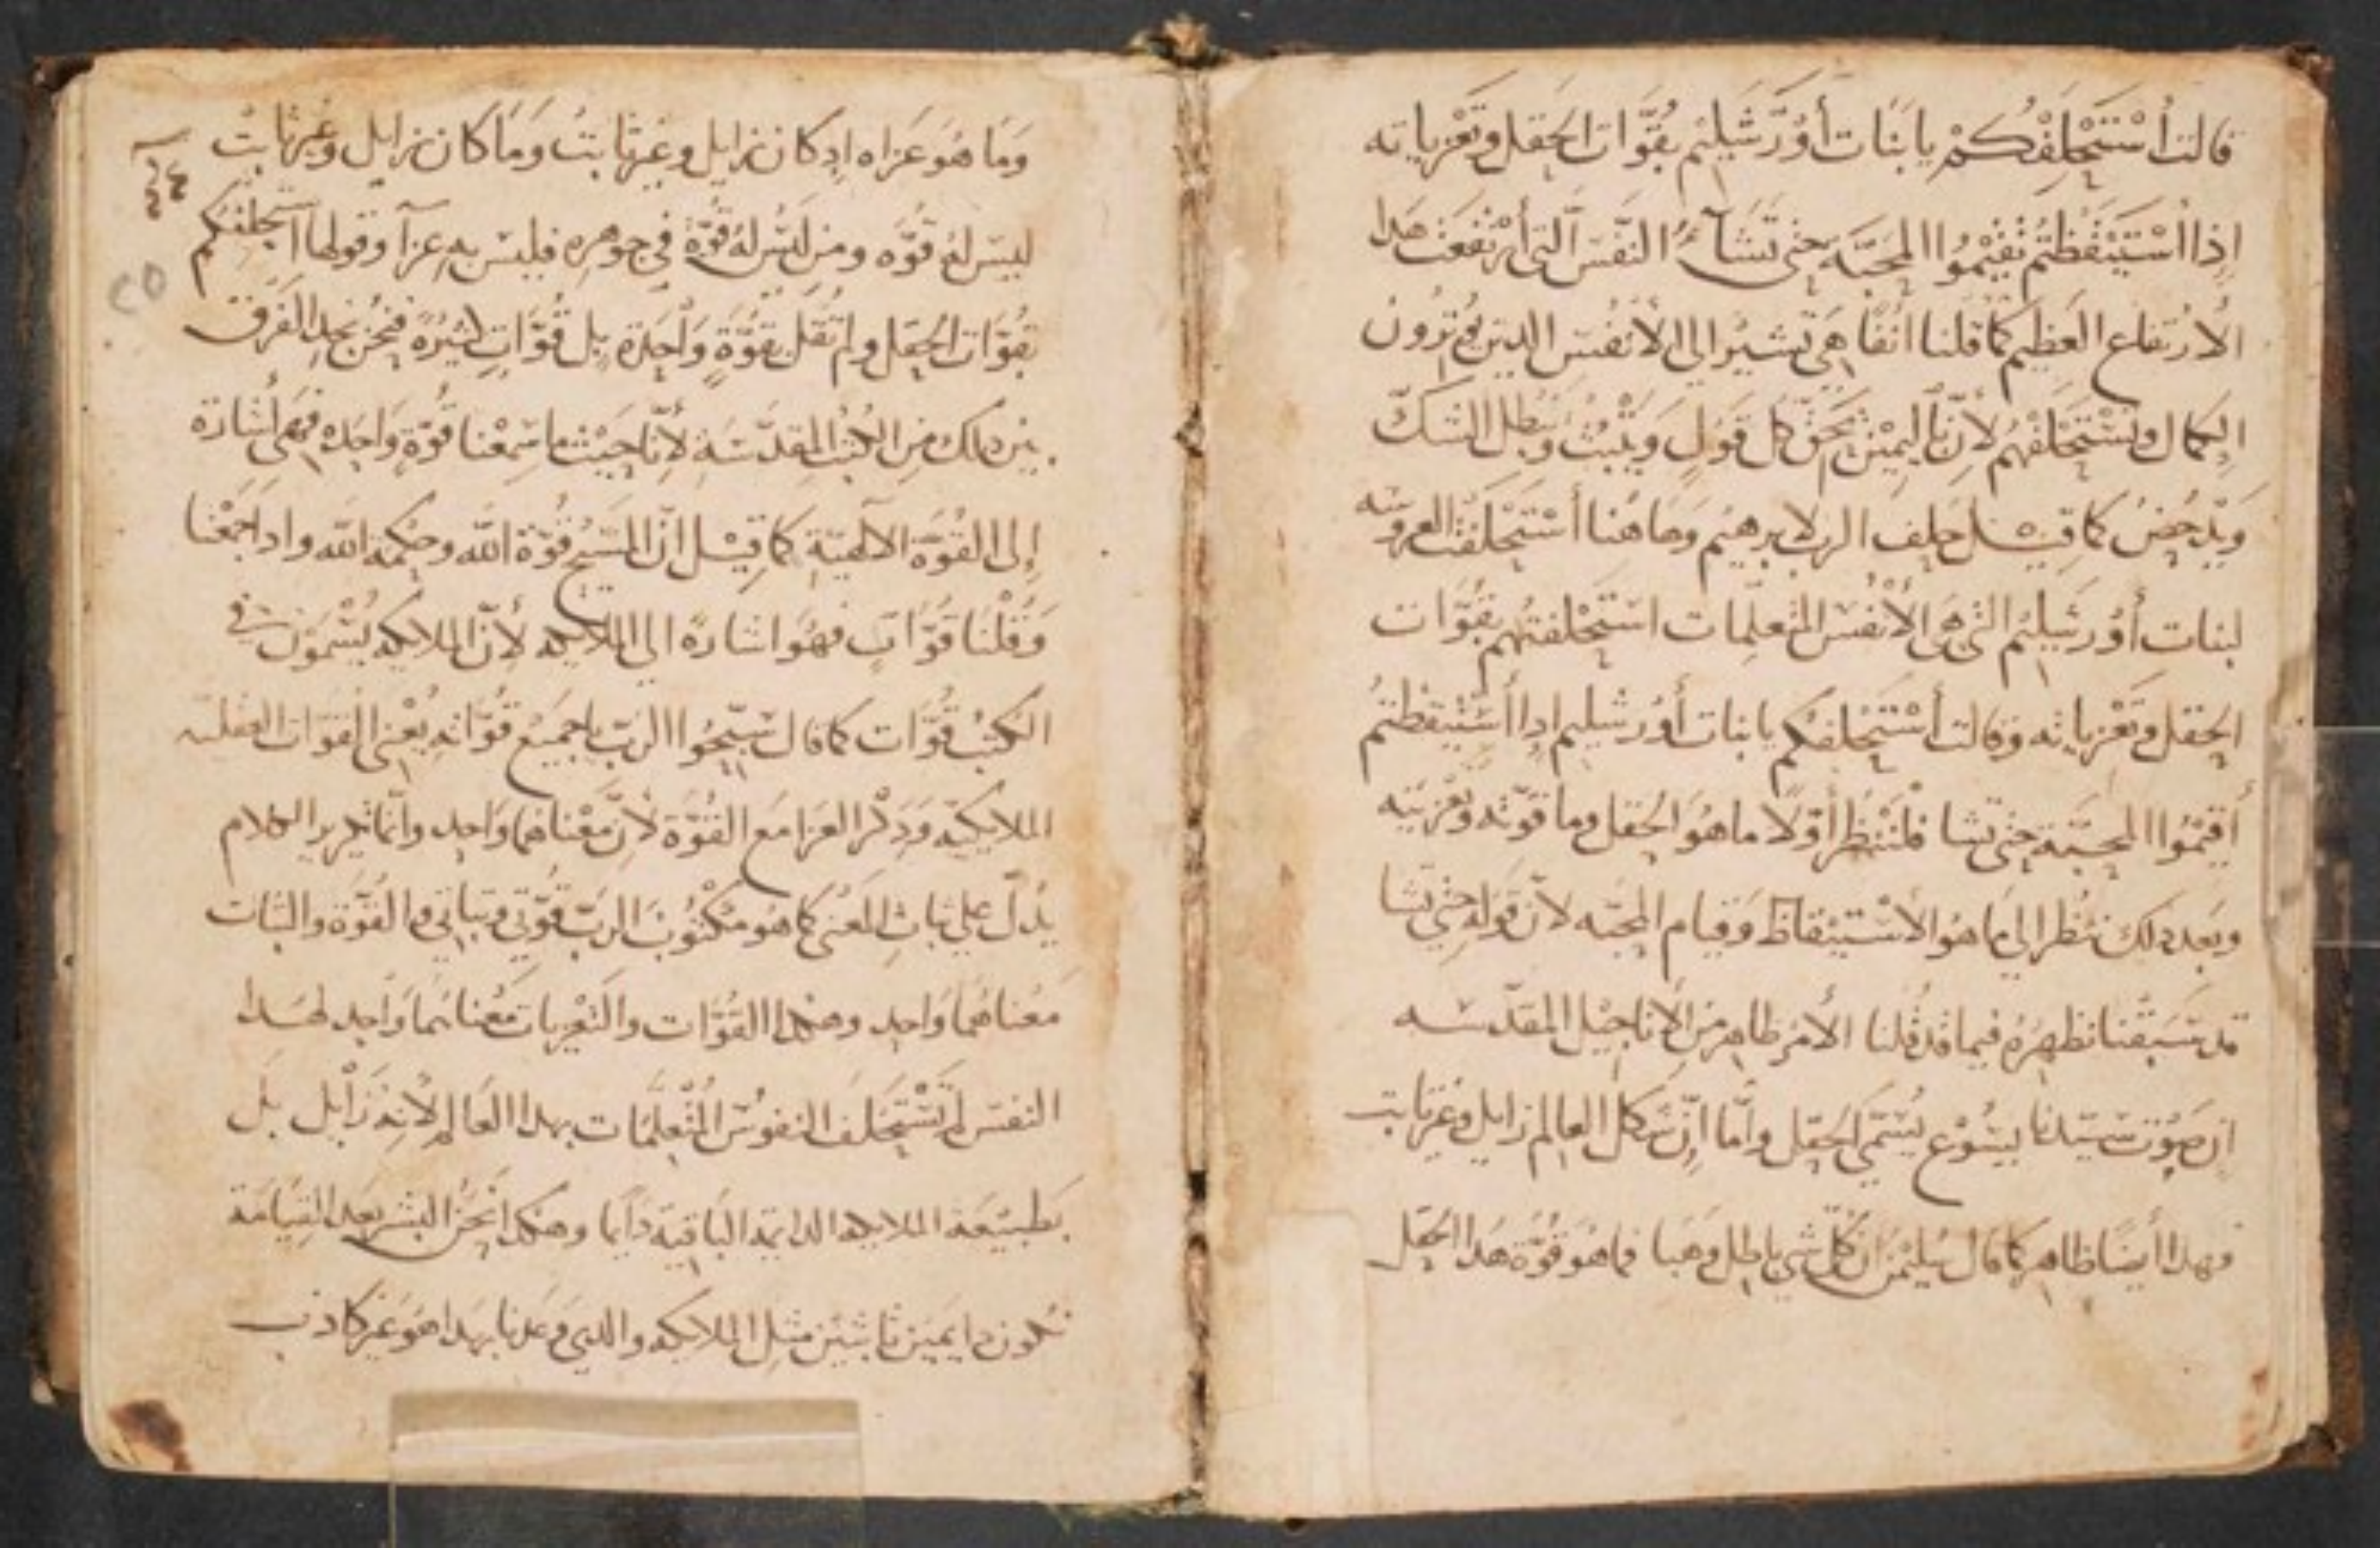 قالت أسْتَحْلِفْكُمْ يا بَنَات أُوُرَشَلِيْم بقُوَّات الحَقل وتَعْزياته
إذا اسْتَيْقَظتُم تُقِيْمُوا المحَبَّة حتى تَشَآءُ النَفْسَ الَّتِى أرْتَفَعَت هَدا
الأرْتفاع العَظِيم كَما قُلنا انُفًا هي تشيرُ الي الأنفُس الدين يُريْدُونُ
الكمال وتسْتَحلفهُم لأنَّ اليمِيْن تُحَقّ كل قَولٍ وَيُثْبُتُ وَيبُطل الشَكّ
ويَدْحُضُ كما قِيْل حلف الرب لابرهيْم وهاهُنا أسْتَحْلَفَت العروسَه
لبنات أُوُرشَلِيْم التى هَى الأنْفُسْ المُتْعلِّمات استَحْلفتهُم بقُوَّات
الحَقل وتعْزياته وقالت أسْتَحْلفكُم يا بنات أُوُرشليم ادا أسْتَيقظتُم
أقيْمُوا المحبَّة حتى تشا فَلنَنْظُر أوّلًا ما هُوَ الحَقل وما قوّته وتَعْزيَته
وبَعد دلك ننْظر الي مَا هُو الأسْتيْقاظ وَقيام المحبّه لانّ قوله حتى تشا
قد سَبَقْنا نظهِرَهُ فيما قد قُلنا الأمْر ظاهِر من الأناجيْل المقدّسَه
ان صَوْت سَيّدنا يسُوْع يُسَمّي الحَقل وأمَّا إنّ شكل العالم زايل وغير ثابت
فهدا أيضًا ظاهِر كَما قال سُليْمن ان كُلّ شي باطل وهَبا فما هُوَ قُوَّة هَدا الحَقل
وَمَا هُوَ عَزاه إد كان زايل وغير ثابتُ وَمَا كان زايل وغير ثابتُ
ليسَ لهُ قُوَّه ومن ليسَ لهُ قُوَّةُ في جَوهرِه فليسَ به عزآ وقولها أستَحلفكم
بقُوَّات الحَقل ولم تقُل بقُوَّةٍ وَاحِدة بل قُوَّاتٍ كثيُرةً فنحْنُ نجد الفَرق
بين دلك من الكتُبُ المُقدّسَة لأنّا حَيْث ما سَمِعْنا قُوّةٍ واحِده فهي أشارة
إلى القُوّة الالهيّة كما قيْل انّ المَسيح قُوّة الله وحِكمة الله وادا جَمَعْنا
وَقُلْنَا قُوَّاتٍ فهُوَ اشارةً الي الملايكه لأنّ الملايكه يُسَّمَوْن في
الكُتبُ قُوَّات كما قال سَبّحُوا الرَب يا جَميْع قُوّاته يُعْني القوّات العقليّه
الملايكيّه وَدِكْر العَزا مَع القُوّة لأنّ مَعْناهُما وَاحِد وأنّما تكرير الكلام
يُدلّ علي ثباثِ المَعْنى كَما هُو مَكْتوُبَ الرَبّ قُوَّتي وثباتي والقُوّة والثبات
مَعْناهُما وَاحِد وهكدا القُوَّات والتَعْزيات مَعْناهُما وَاحِد لهَدا
النفسَ لم تسْتَحْلف النفوسُ المُتْعلّمات بهدا العَالم لأنّه زَايْل بَل
بَطبيْعَة الملايكه الدايمَة البَاقيَه دَايمًا وهكدا نَحْنُ البشر بعْد القِيَامَة
نكون دايميْن ثابتيْن مثل الملايكه والدي وعَدنا بهدا هُوَ غير كادب
٢٤
٢٥